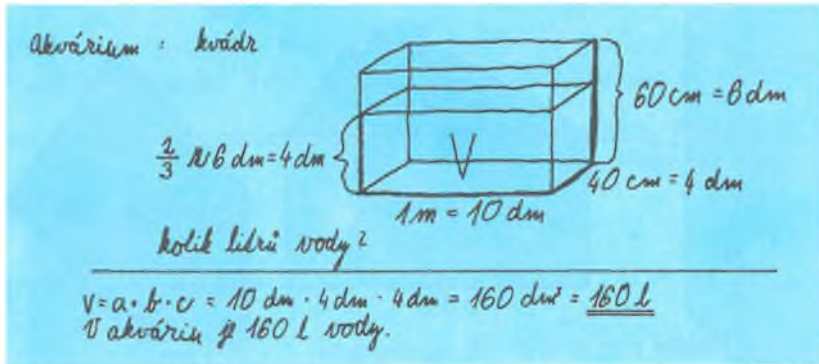 akvárium : kvádr
60 cm = 6 dm
2/3 z 6 dm = 4 dm
V
40 cm = 4 dm
1 m = 10 dm
kolik litrů vody?
V = a · b · c = 10 dm · 4 dm · 4 dm = 160 dm³ = 160 l
V akváriu je 160 l vody.